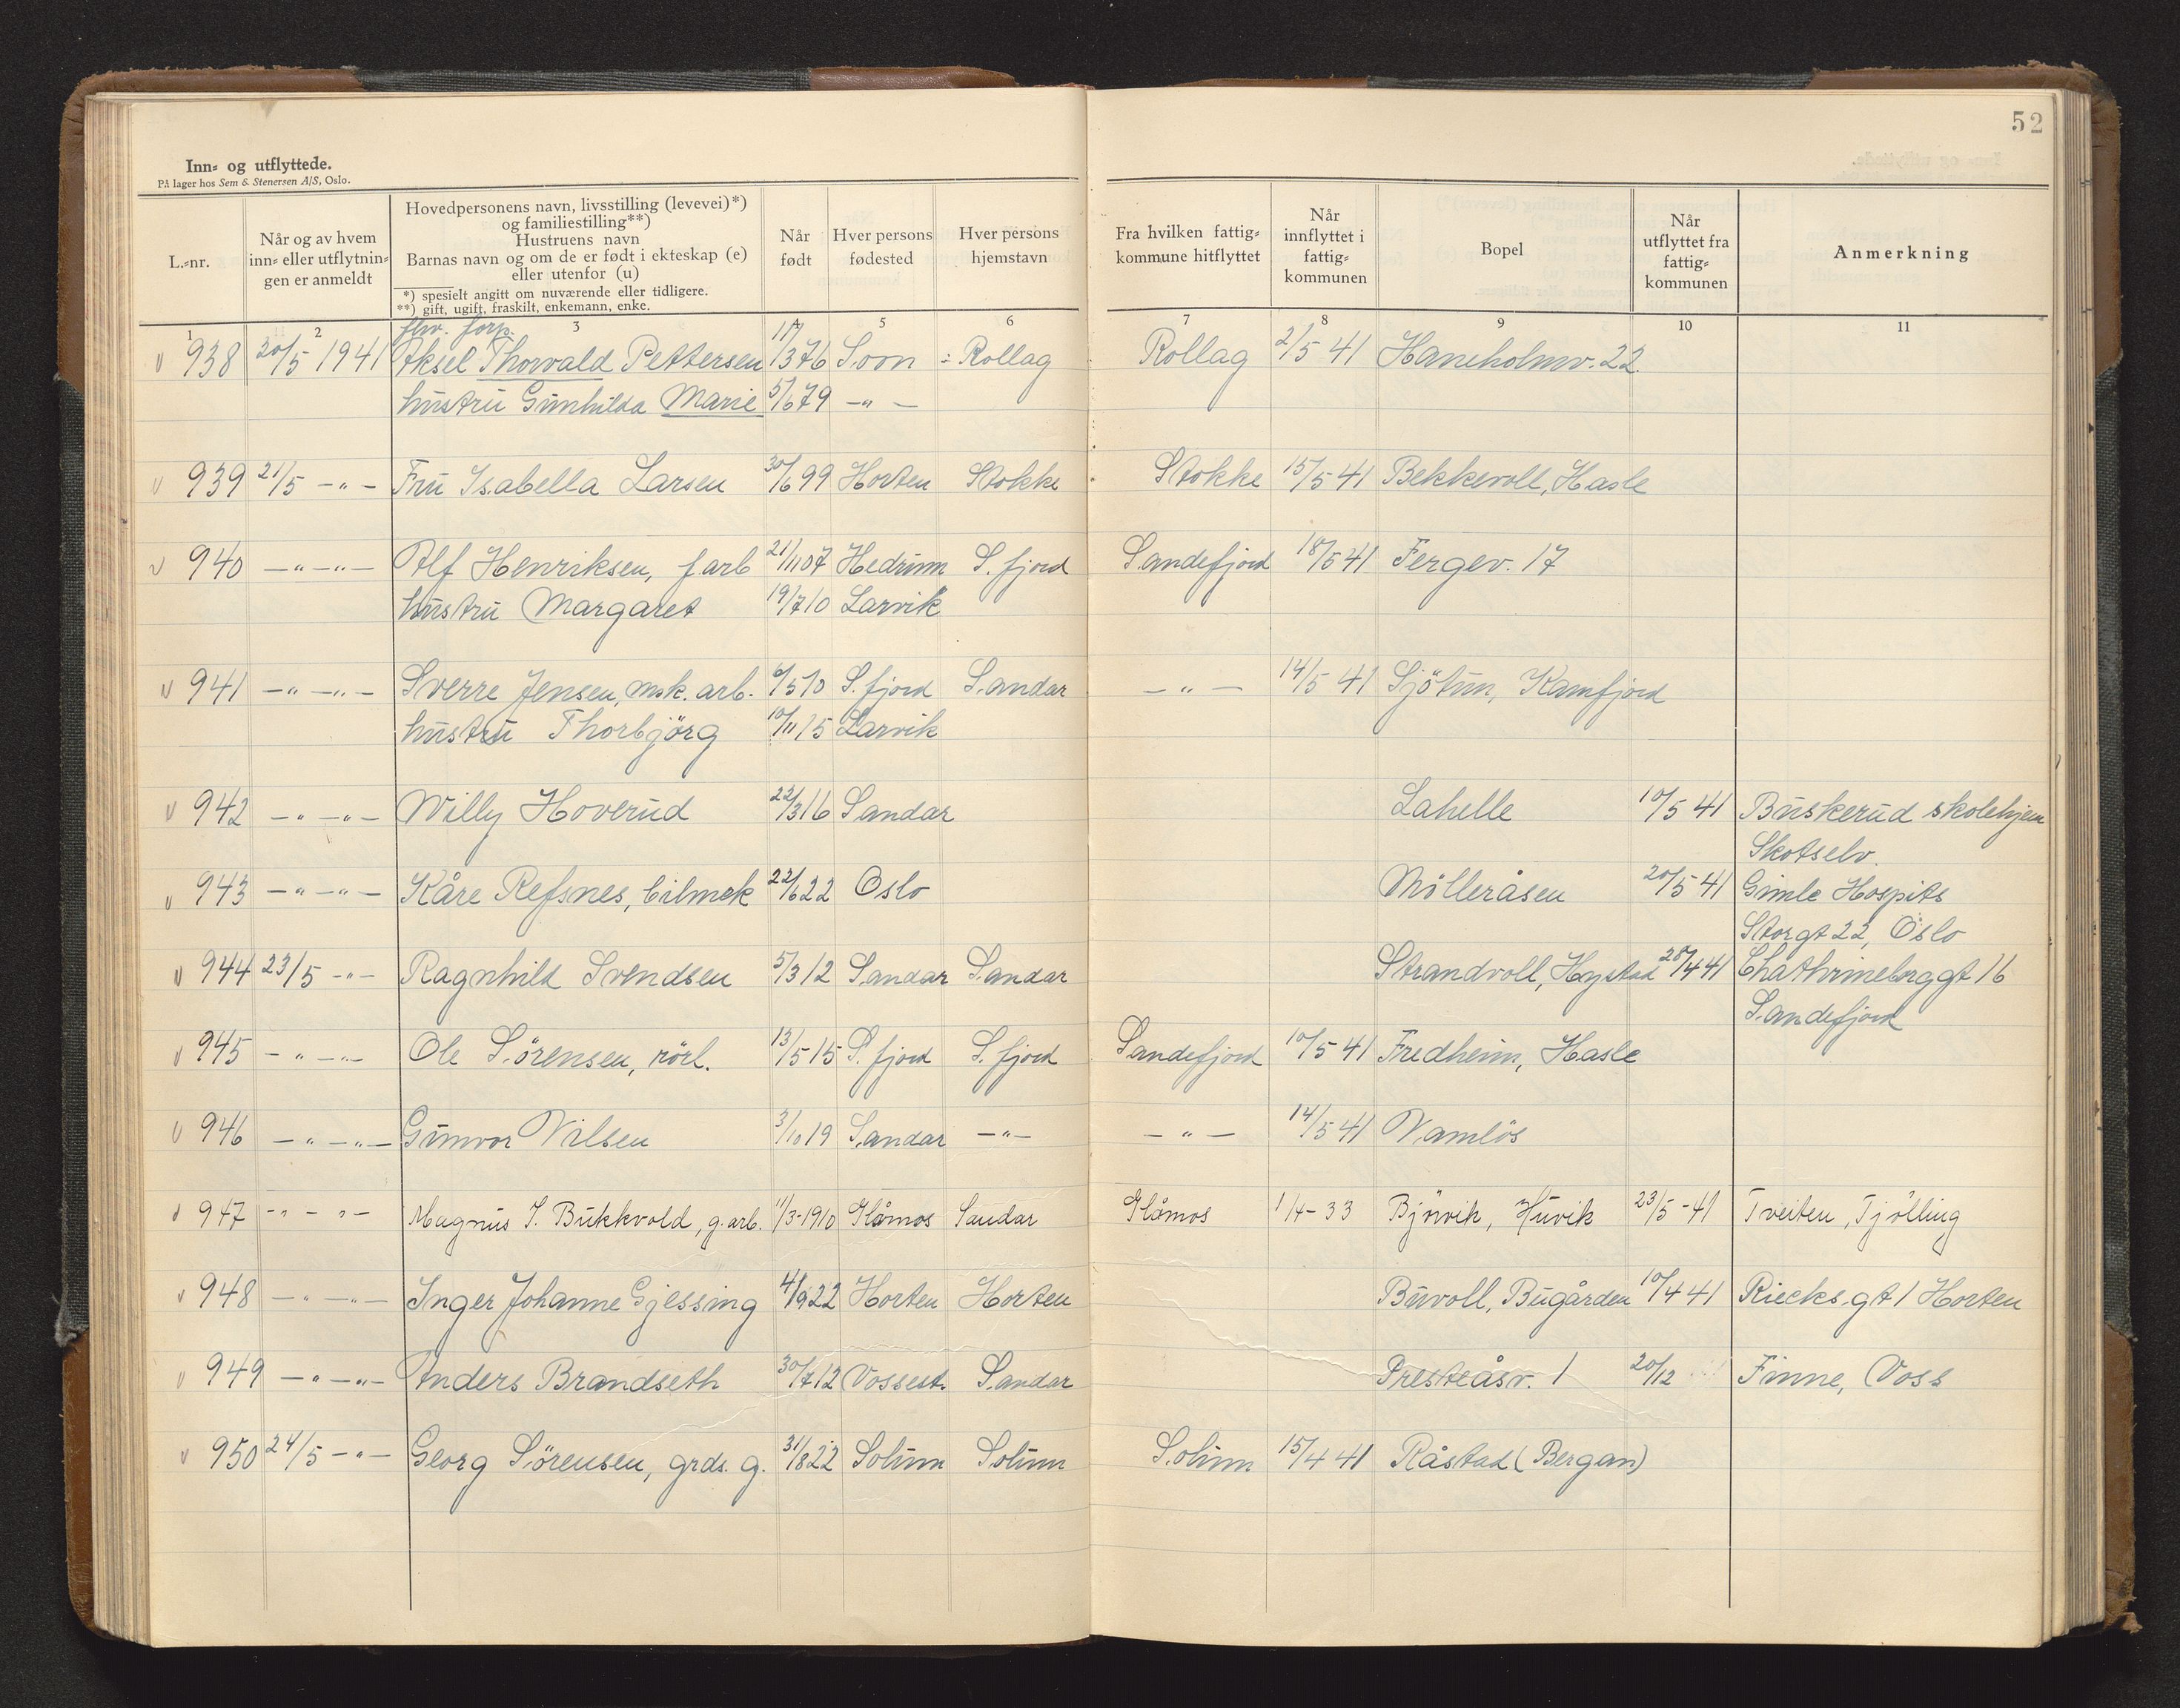 52
Inn- og utflyttede.
På lager hos Sem & Stenersen A/S, Oslo.
L.-nr.
Når og av hvem inn- eller utflytningen er anmeldt
Hovedpersonens navn, livsstilling (levevei)*) og familiestilling**)
Hustruens navn
Barnas navn og om de er født i ekteskap (e) eller utenfor (u)
*) spesielt angitt om nuværende eller tidligere.
**) gift, ugift, fraskilt, enkemann, enke.
Når født
Hver persons fødested
Hver persons hjemstavn
Fra hvilken fattigkommune hitflyttet
Når innflyttet i fattigkommunen
Bopel
Når utflyttet fra fattigkommunen
Anmerkning
1 2 3 4 5 6 7 8 9 10 11
fhv. forp.
938 20/5 1941 Aksel Thorvald Pettersen 11/3 76 Soon Rollag Rollag 2/5 41 Haneholmv. 22
hustru Gunhilda Marie 5/6 79 -"-
939 21/5 -"- Fru Isabella Larsen 30/6 99 Horten Stokke Stokke 15/5 41 Bekkevoll, Hasle
940 -"-"- Alf Henriksen, f.arb 21/11 07 Hedrum S.fjord Sandefjord 18/5 41 Fergev. 17
hustru Margaret 19/7 10 Larvik
941 -"-"- Sverre Jensen, msk. arb. 6/5 10 S.fjord Sandar -"- 14/5 41 Sjötun, Kamfjord
hustru Thorbjörg 10/11 15 Larvik
942 -"-"- Willy Hoverud 22/3 16 Sandar Lahelle 10/5 41 Buskerud skolehjem
Skotselv.
943 -"-"- Kåre Refsnes, bilmek 22/6 22 Oslo Mölleråsen 20/5 41 Gimle Hospits
Storgt 22, Oslo
944 23/5 -"- Ragnhild Svendsen 5/3 12 Sandar Sandar Strandvoll, Hystad 28/4 41 Chathrineborggt 16
Sandefjord
945 -"-"- Ole Sörensen, rörl. 13/5 15 S.fjord S.fjord Sandefjord 10/5 41 Fredheim, Hasle
946 -"-"- Gunvor Nilsen 3/10 19 Sandar -"- -"- 14/5 41 Namlös
947 -"-"- Magnus S. Bukkvold, g.arb. 11/3-1910 Glåmos Sandar Glåmos 1/4-33 Björvik, Huvik 23/5-41 Tveiten, Tjölling
948 -"-"- Inger Johanne Gjessing 4/9 22 Horten Horten Buvoll, Bugården 10/4 41 Riecks.gt 1 Horten
949 -"-"- Anders Brandseth 30/7 12 Vossest. Sandar Presteåsv. 1 20/12 Finne, Voss
950 24/5 -"- Georg Sörensen, grds. g. 31/8 22 Solum Solum Solum 15/4 41 Råstad (Bergan)